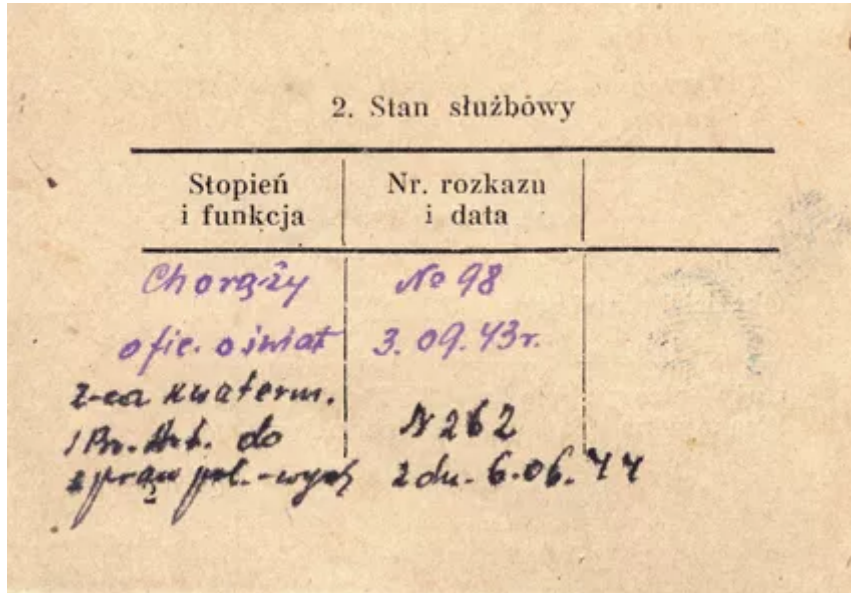 2. Stan służbowy
Stopień i funkcja
Nr. rozkazu i data
Chorąży
№ 98
ofic. oświat
3. 09. 43r.
z-ca kwaterm.
1 Br. Art. do
N 262
spraw pol.-wych
z dn. 6.06.44